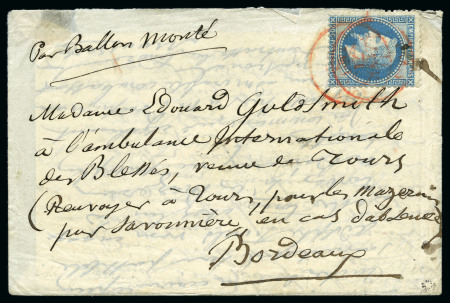 Par Ballon Monté
Madame Edouard Goldsmith
à l'ambulance Internationale
des Blessés, venue de Tours
(Renvoyer à Tours, pour les Mazeraies
par Savonnière, en cas d'absence)
Bordeaux